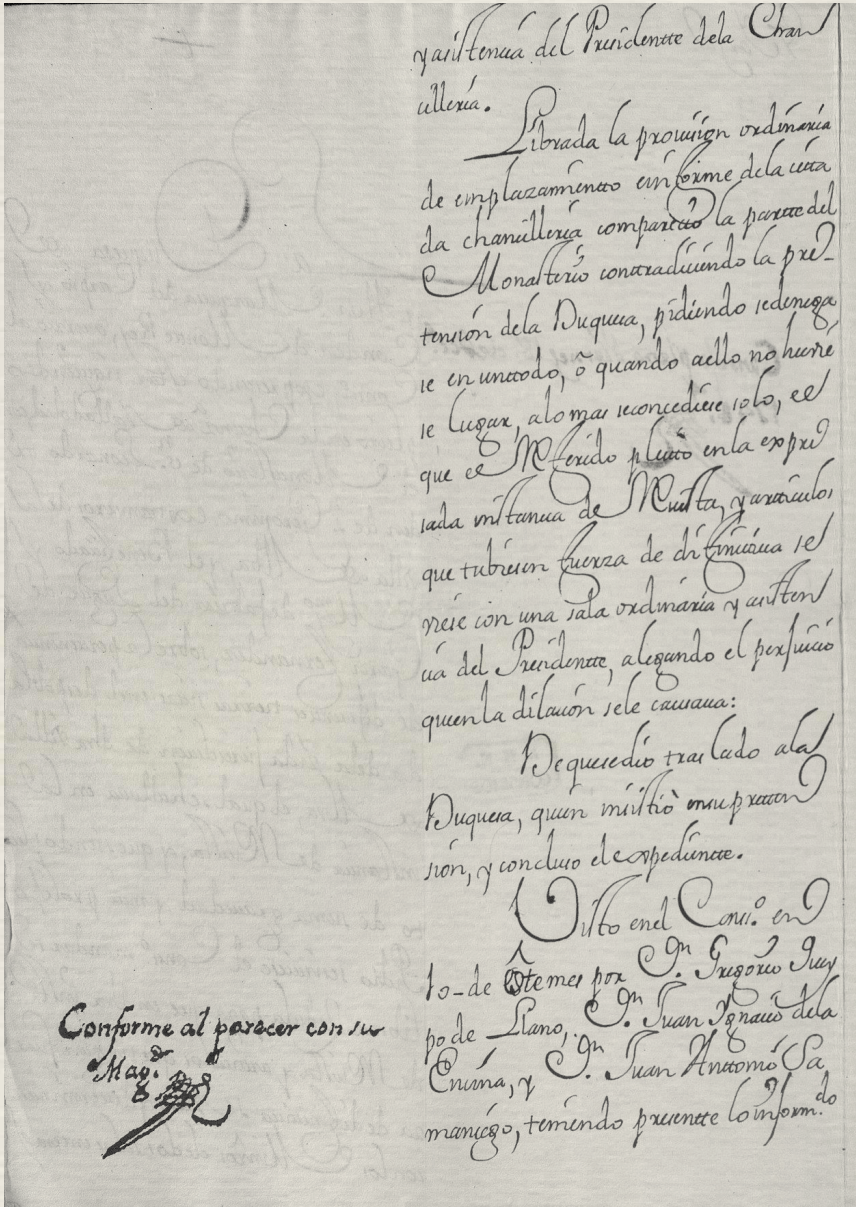 y asistencia del Presidentte dela Chan
cilleria.
Librada la provission ordinaria
de emplazamientto e informe de la citta
da chancilleria comparecio la partte del
Monasterio conttradiciendo la pre-
tension dela Duquesa, pidiendo sedenega
se en unttodo, ô quando aello no huvie
se lugar, alo mas seconcediese solo, el
que el Referido pleito en la expre
sada instancia de Revista, y artticulos
que tubiesen fuerza de difinitiva se
viese con una sala ordinaria y asisten
cia del Presidentte, alegando el perjuicio
quenla dilacion sele causava:
De quesedio traslado ala
Duquesa, quien insistio ensu pretten
sion, y concluso el expedientte.
Visto enel Cons.º en
10-de estemes por Dn. Gregorio Quey
po de Llano, Dn. Juan Ygnacio dela
Encina, y Dn. Juan Anttonio Sa
maniego, teniendo presentte lo inform.do
Conforme al parecer con su
Mag.d